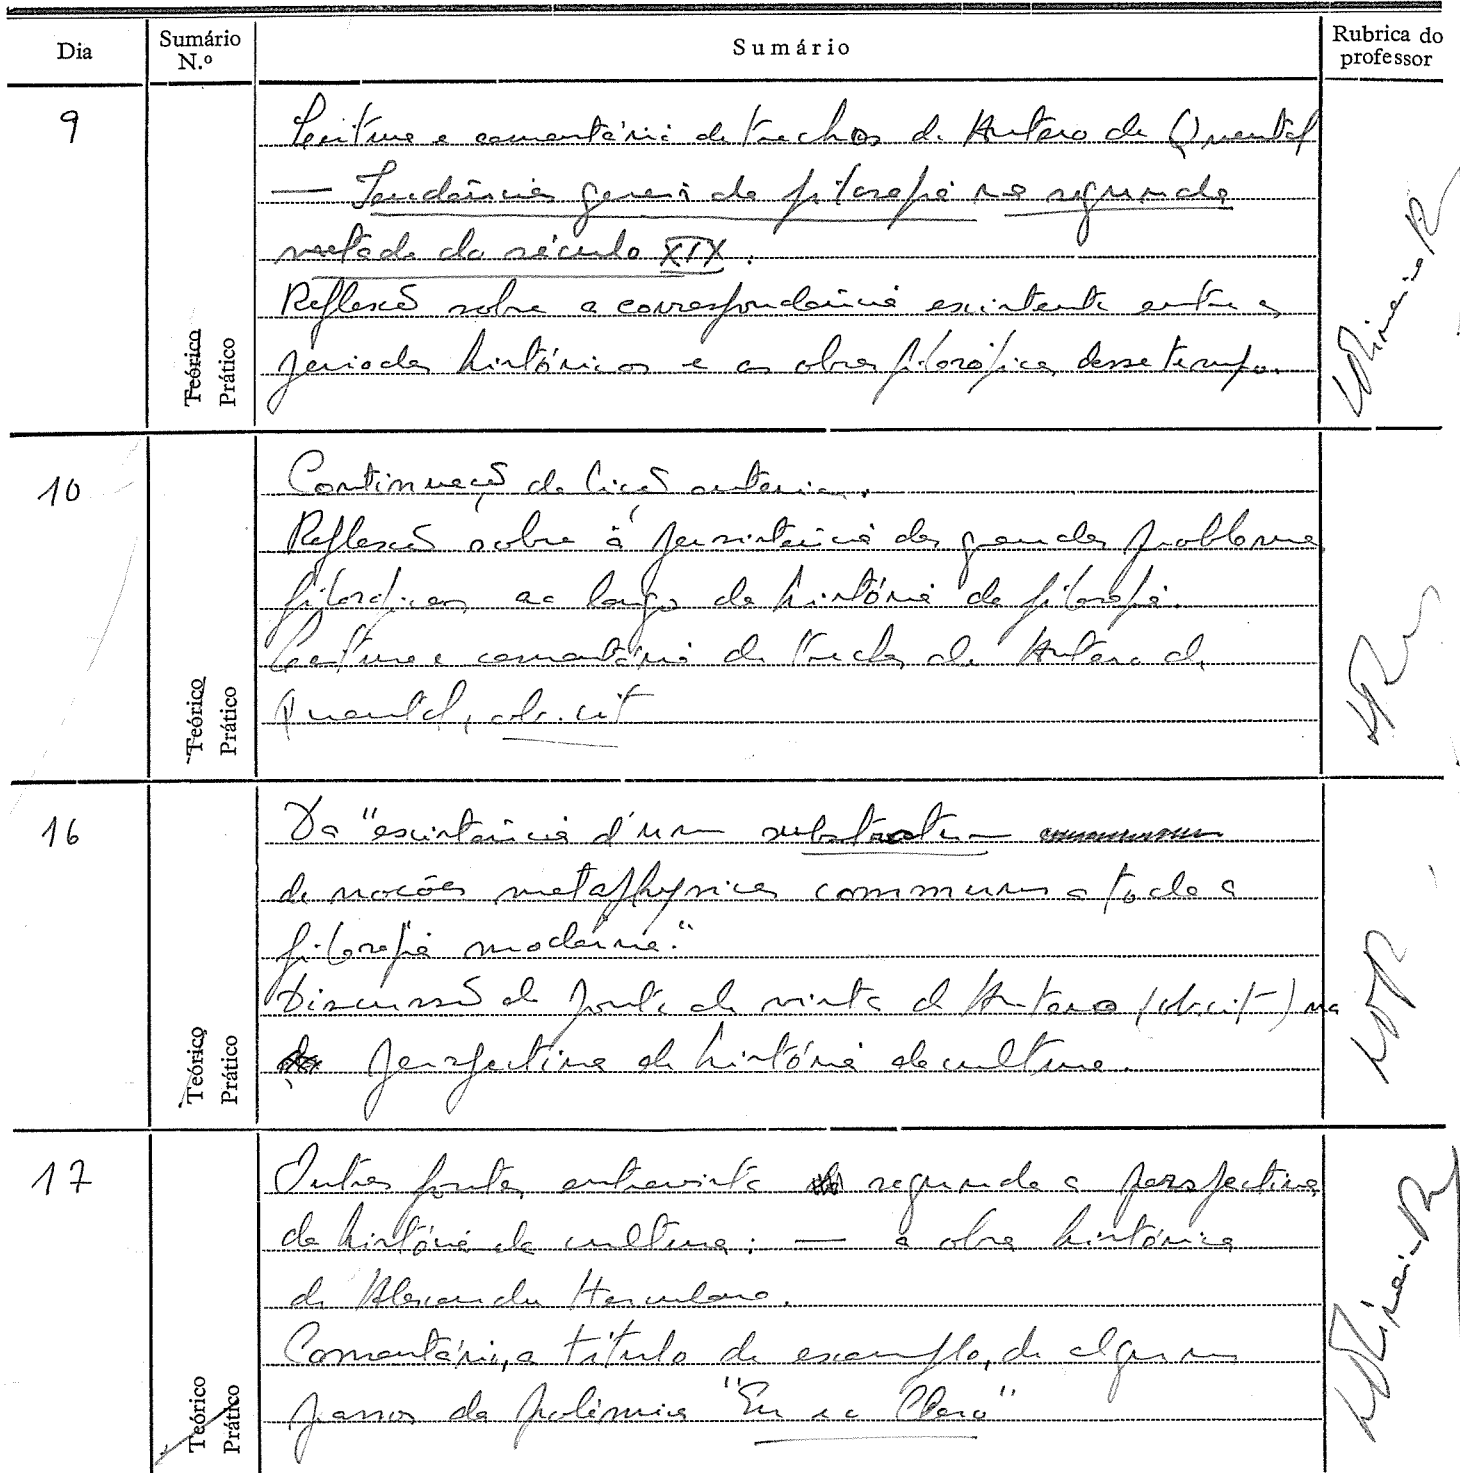 Dia
Sumário N.º
Sumário
Rubrica do professor
9
Leitura e comentário de trechos de Antero de Quental
— Tendências gerais da filosofia na segunda
metade do século XIX.
Reflexão sobre a correspondência existente entre os
períodos históricos e as obras filosóficas desse tempo.
Teórico
Prático
10
Continuação da lição anterior.
Reflexão sobre a persistência dos grandes problemas
filosóficos ao longo da história da filosofia.
Leitura e comentário de trechos de Antero de
Quental, ob. cit
Teórico
Prático
16
Da "existência d'um substratum
de noções metaphysicas communs a toda a
filosofia moderna."
Discussão do ponto de vista de Antero (ob. cit) na
perspectiva da história da cultura.
Teórico
Prático
17
Outras fontes entrevista segundo a perspectiva
da história da cultura: — a obra histórica
de Alexandre Herculano.
Comentário, a título de exemplo, de alguns
passos da polémica "Eu e o Clero"
Teórico
Prático